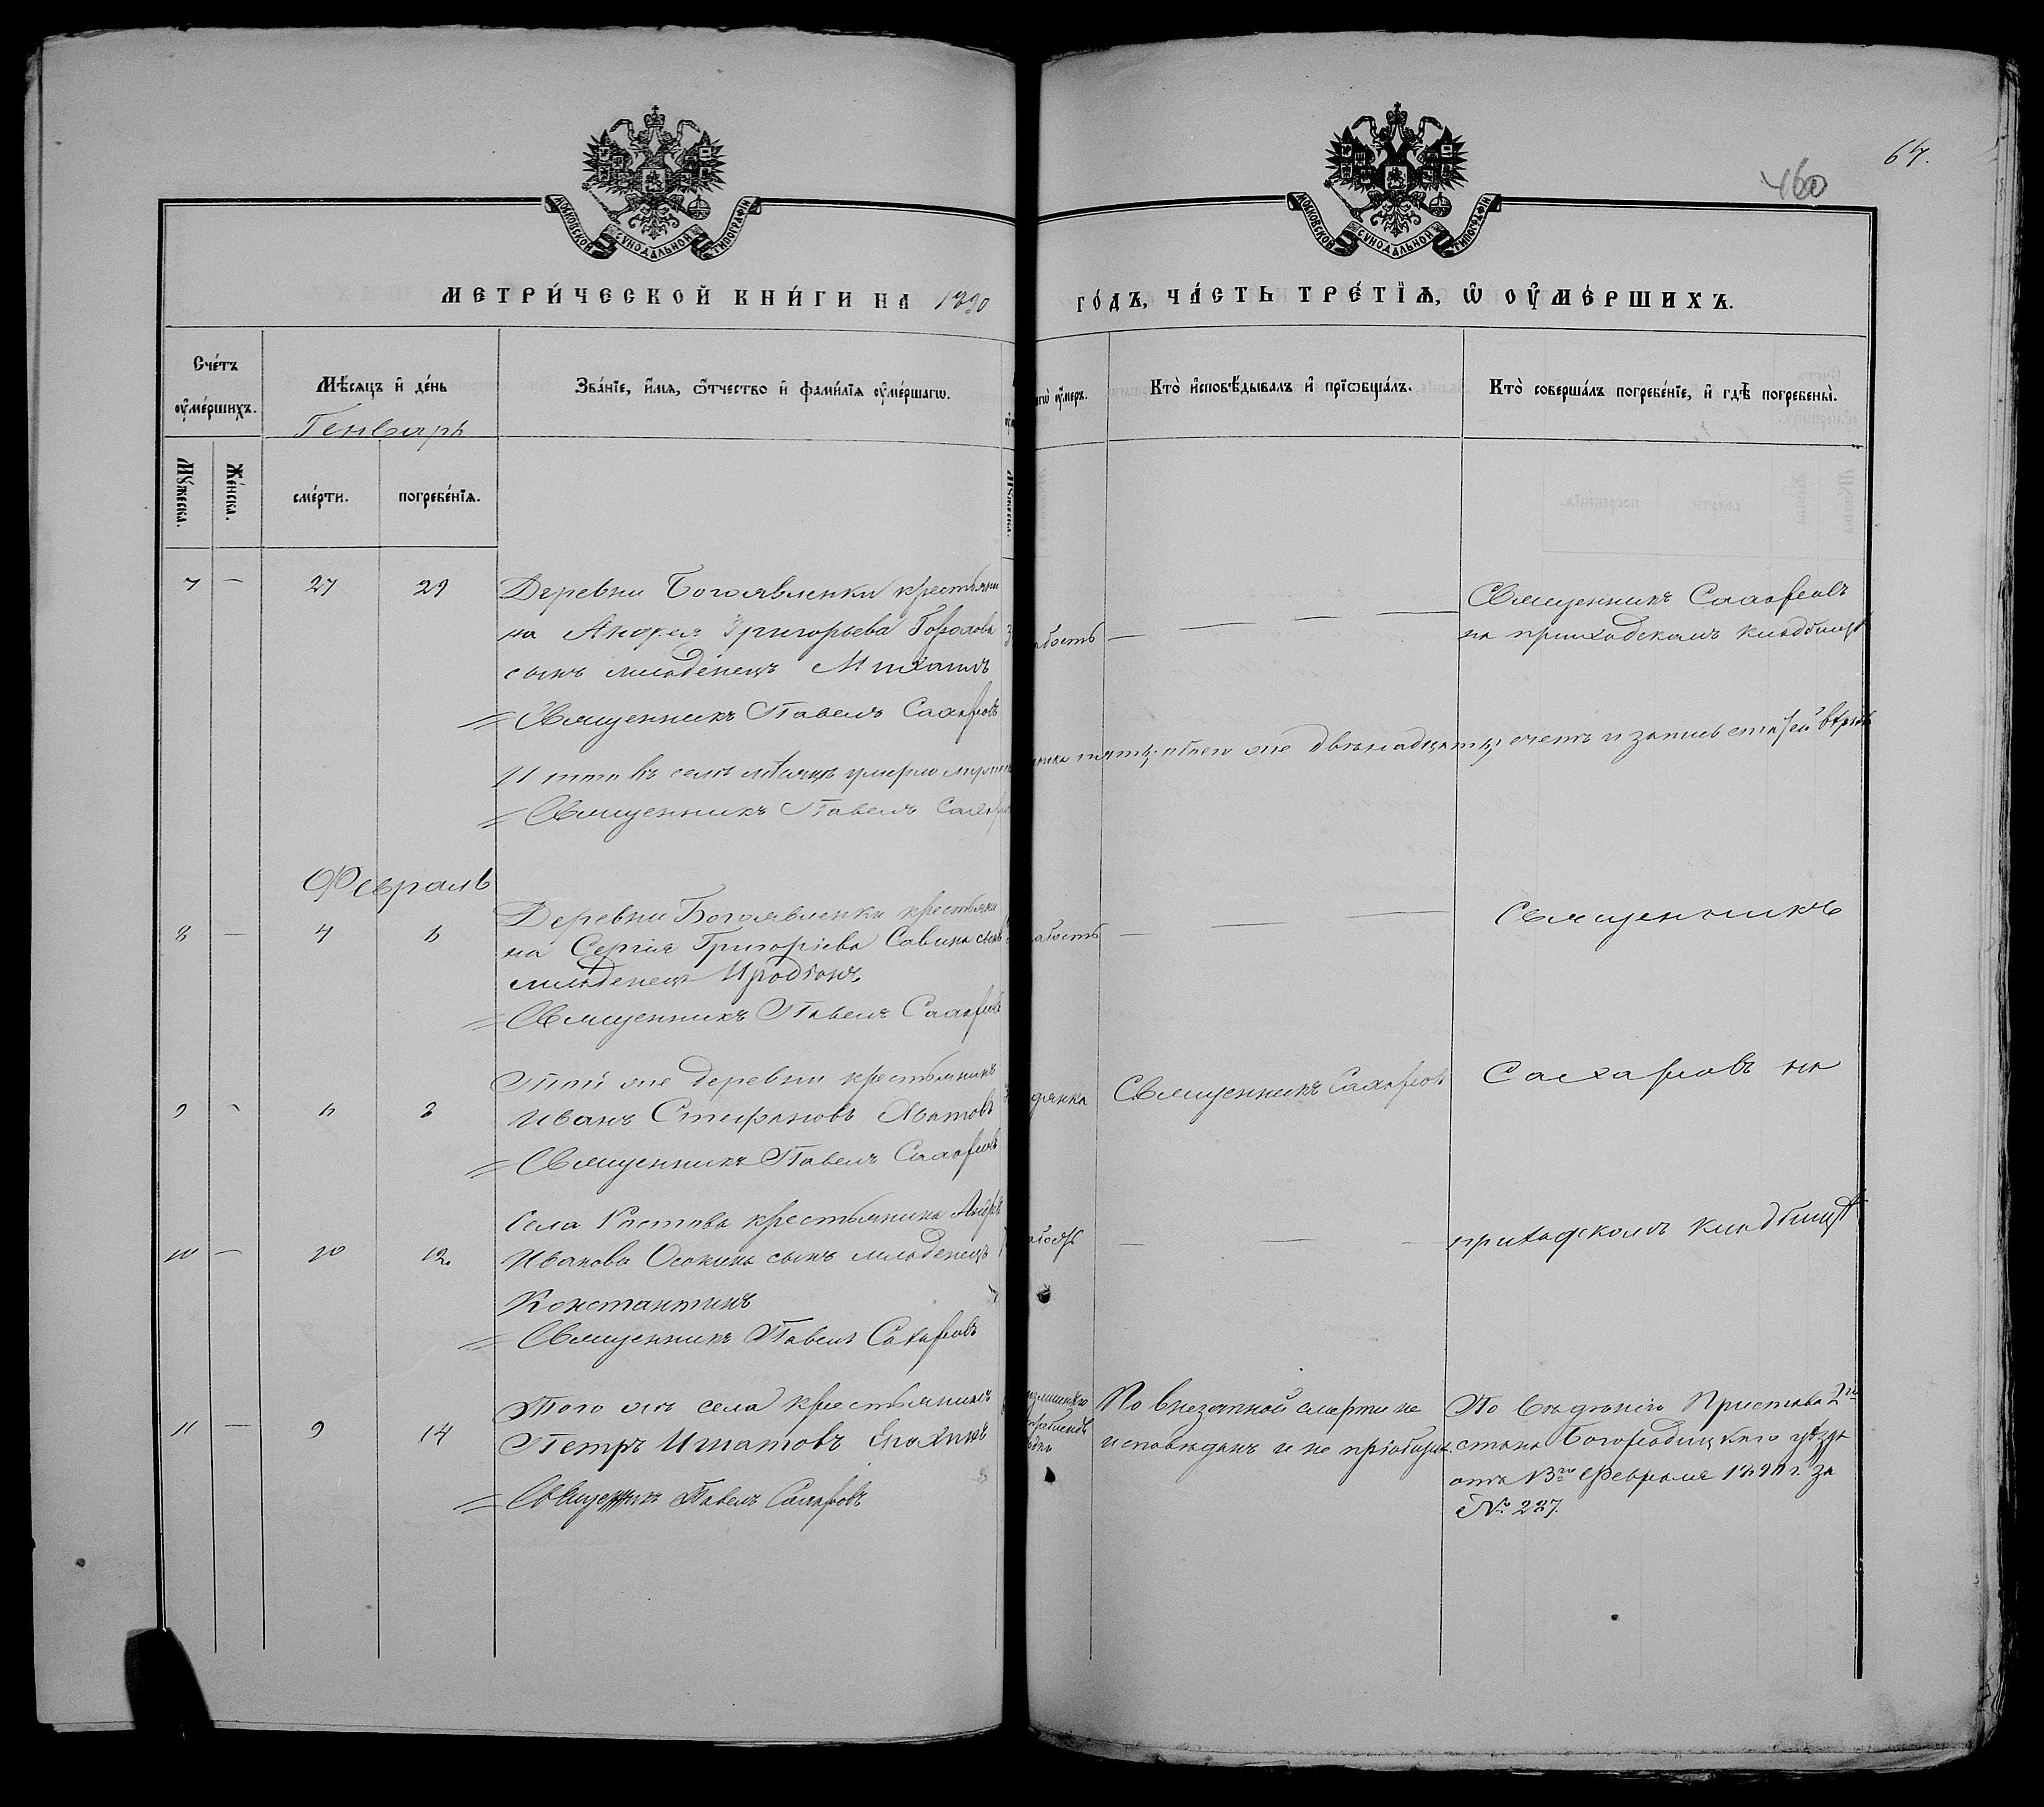 67.
460
МОСКОВСКОЙ СУНОДАЛЬНОЙ ТИПОГРАФІИ
МОСКОВСКОЙ СУНОДАЛЬНОЙ ТИПОГРАФІИ
МЕТРИ́ЧЕСКОЙ КНИ́ГИ НА 1890
ГО́ДЪ, ЧА́СТЬ ТРЕ́ТІѦ, Ѡ҆ ОУ҆МЕ́РШИХЪ.
Сче́тъ оу҆ме́ршихъ.
Мѣ́сяцъ и҆ де́нь
Генварь
Зва́нїе, и҆́мя, ѻ҆́тчество и҆ фами́лїя оу҆ме́ршагѡ.
оу҆́меръ.
Кто̀ и҆сповѣ́дывалъ и҆ прїѡбща́лъ.
Кто̀ соверша́лъ погребе́нїе, и҆ гдѣ̀ погребены̀.
Мꙋ́жеска.
Же́нска.
сме́рти.
погребе́нїя.
Мꙋ́жеска.
7 — 27 29
Деревни Богоявленки крестьяни
на Андрея Григорьева
сынъ младенецъ Михаилъ
= Священникъ Павелъ Сахаровъ
абость — — — —
Священникъ Сахаровъ
на приходскомъ кладбищѣ
Итого въ семъ мѣсяцѣ умерло
пять; обоего же двѣнадцать;
= Священникъ Павелъ Сахар
Февраль
8 — 4 6
Деревни Богоявленки крестьяни
на Сергія Григоріева Савина сынъ
младенецъ Иродіонъ
= Священникъ Павелъ Сахаровъ
абость — — —
Священникъ
9 - 6 8
Той же деревни крестьянинъ
Иванъ Стефановъ
= Священникъ Павелъ Сахаровъ
дянка
Священникъ Сахаровъ
Сахаровъ на
10 — 10 12
Села крестьянина Андрея
Иванова Осокина сынъ младенецъ
Константинъ
= Священникъ Павелъ Сахаровъ
— — —
приходскомъ кладбищѣ
11 — 9 14
Того же села крестьянинъ
Петръ Игнатовъ
= Священникъ Павелъ Сахаровъ
По внезапной смерти не
исповѣданъ и не пріобщенъ
По вѣдѣнію Пристава 2го
стана Богородицкаго уѣзда
отъ 13го Февраля 1890 г. за
№ 227.